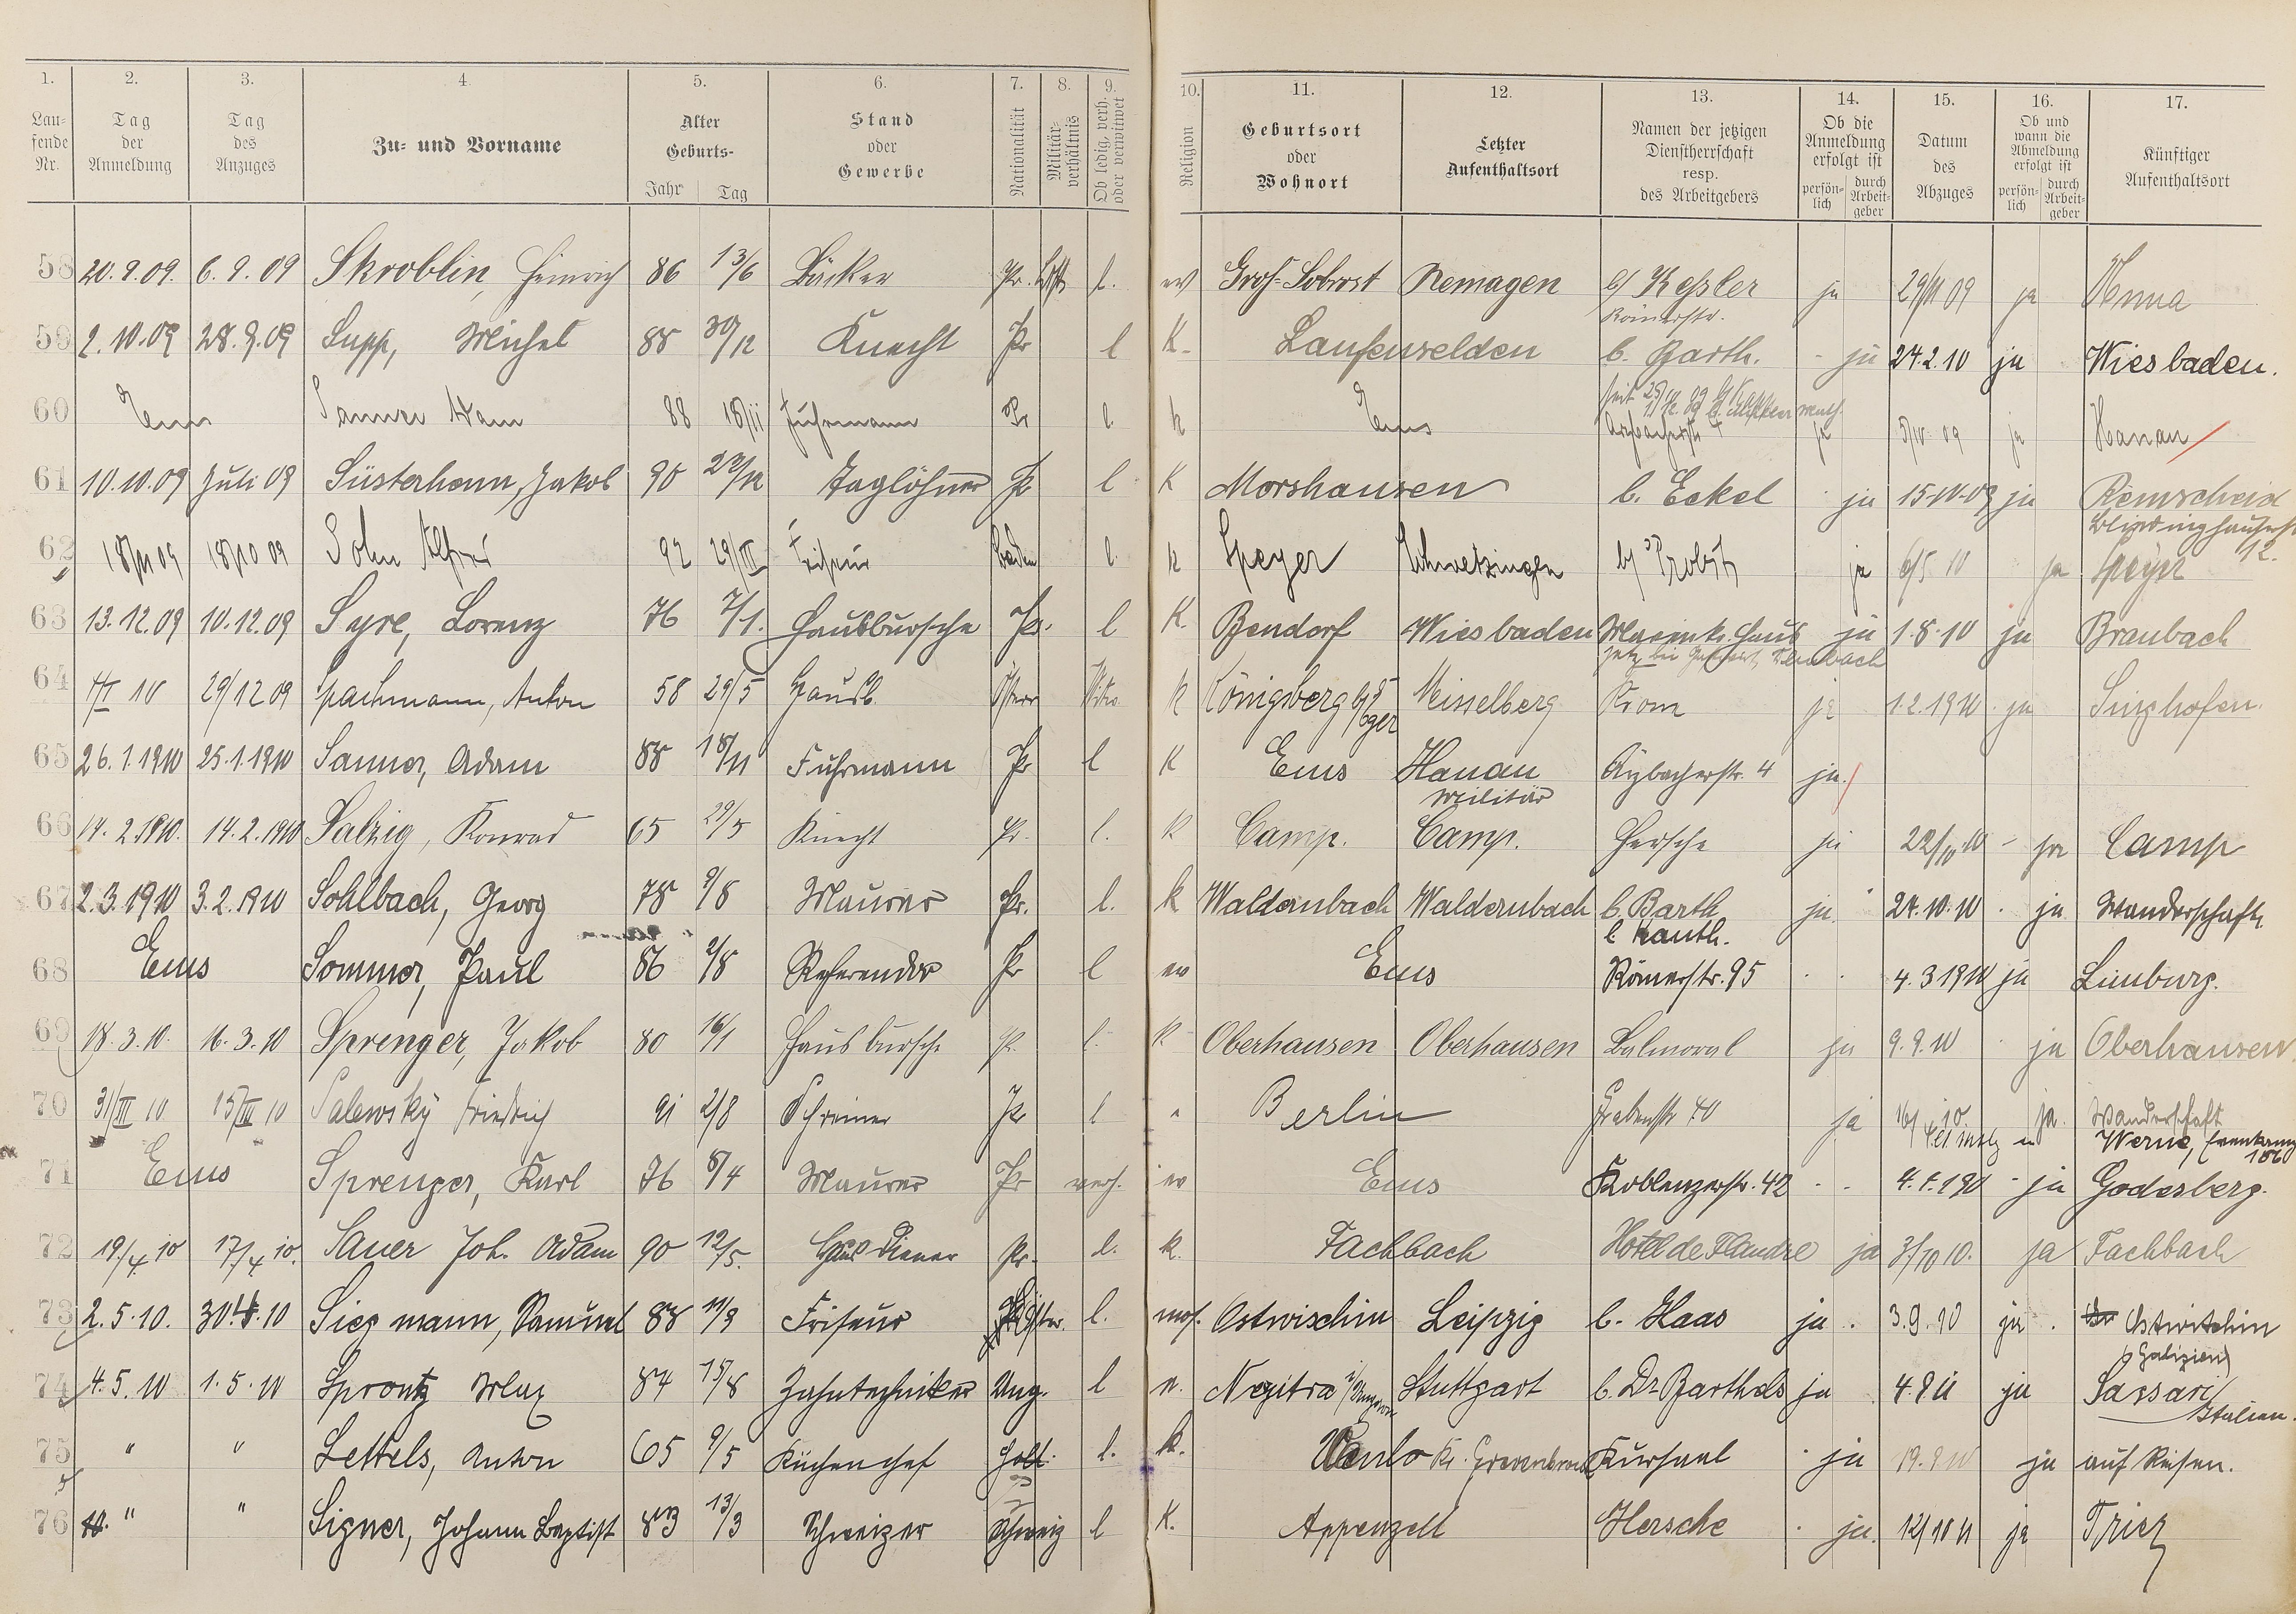 1. 2. 3. 4. 5. 6. 7. 8. 9. 10. 11. 12. 13. 14. 15. 16. 17.
Laufende Nr. | Tag der Anmeldung | Tag des Anzuges | Zu- und Vorname | Alter Geburts- Jahr Tag | Stand oder Gewerbe | Nationalität | Militärverhältnis | Ob ledig, verh. oder verwitwet | Religion | Geburtsort oder Wohnort | Letzter Aufenthaltsort | Namen der jetzigen Dienstherrschaft resp. des Arbeitgebers | Ob die Anmeldung erfolgt ist persönlich durch Arbeitgeber | Datum des Abzuges | Ob und wann die Abmeldung erfolgt ist persönlich durch Arbeitgeber | Künftiger Aufenthaltsort
58 20.9.09. 6.9.09 Skroblin, Heinrich 86 13/6 Bäcker Pr. l. ev Groß-Sobrost Remagen b/ Keßler ja 29/11 09 ja Unna
Römerstr.
59 2.10.09 28.9.09 Supp, Michel 88 30/12 Knecht Pr l K. Laufenselden b. Barth. - ja 24.2.10 ja Wiesbaden.
60 Ems Sanner Adam 88 18/11 Fuhrmann Pr l. k Ems Arzbacherstr 4 ja 5/10 09 ja Hanau
61 10.10.09 Juli 09 Süsterhenn, Jakob 90 22/12 Taglöhner Pr l K Morshausen b. Eckel ja 15.10.09 ja Remscheid
Bliedinghauserstr 12.
62 18/11 09 18/10 09 Sohn Alfred 92 29/III Friseur Baden l. k Speyer Schwetzingen b/ Probst ja 6/5 10 ja Speyer
63 13.12.09 10.12.09 Syre, Lorenz 76 7/1. Hausbursche Pr. l K. Bendorf Wiesbaden ja 1.8.10 ja Braubach
64 4/I 10 29/12 09 Spachmann, Anton 58 29/5 Hausb. Österr k Königsberg b/ Eger Misselberg Krom ja 1.2.1910 ja Singhofen.
65 26.1.1910 25.1.1910 Sanner, Adam 88 18/11 Fuhrmann Pr l K Ems Hanau Arzbacherstr. 4 ja.
Militär
66 14.2.1910. 14.2.1910 Salzig, Konrad 65 29/5 Knecht Pr. l. k Camp. Camp. Hersche ja 22/10 10 - ja Camp
67 2.3.1910 3.2.1910 Sohlbach, Georg 78 9/8 Maurer Pr. l. k Waldernbach Waldernbach b. Barth ja 24.10.10 ja Wanderschaft.
b Kauth.
68 Ems Sommer, Paul 86 2/8 Referendar Pr l ev Ems Römerstr. 95 4.3.1910 ja Limburg.
69 18.3.10. 16.3.10 Sprenger, Jakob 80 16/1 Hausbursche Pr. l. k Oberhausen Oberhausen Balmoral ja 9.9.10 ja Oberhausen
70 31/III 10 15/III 10 Salewsky Friedrich 91 2/8 Schreiner Pr l Berlin Grabenstr 40 ja ja. Wanderschaft
Werne,
71 Ems Sprenger, Karl 76 8/4 Maurer Pr verh. ev Ems Koblenzerstr. 42 - - - ja Godesberg.
72 19/4 10 17/4 10. Sauer Joh. Adam 90 12/5. Hausdiener Pr. l. k. Fachbach Hotel de Flandre ja 3/10 10. ja Fachbach
73 2.5.10. 30.4.10 Siegmann, Samuel 88 11/9 Friseur Öster. l. mos. Ostwischin Leipzig b. Haas ja . 3.9.10 ja . Ostwitschin
Galizien
74 4.5.10 1.5.10 Sprontz Max 84 15/8 Zahntechniker Ung. l Negitra i/Ungarn Stuttgart b. Dr Barthels ja 4.8 11 ja Sassari
Italien.
75 " " Settels, Anton 65 9/5 Küchenchef Holl. l. k. Kr. Grevenbroich Kursaal ja 19.9.10 ja auf Reisen.
76 " " Signer, Johann Baptist 83 13/3 Schweizer Schweiz l K. Appenzell Hersche ja. 12/10 11 ja Trier